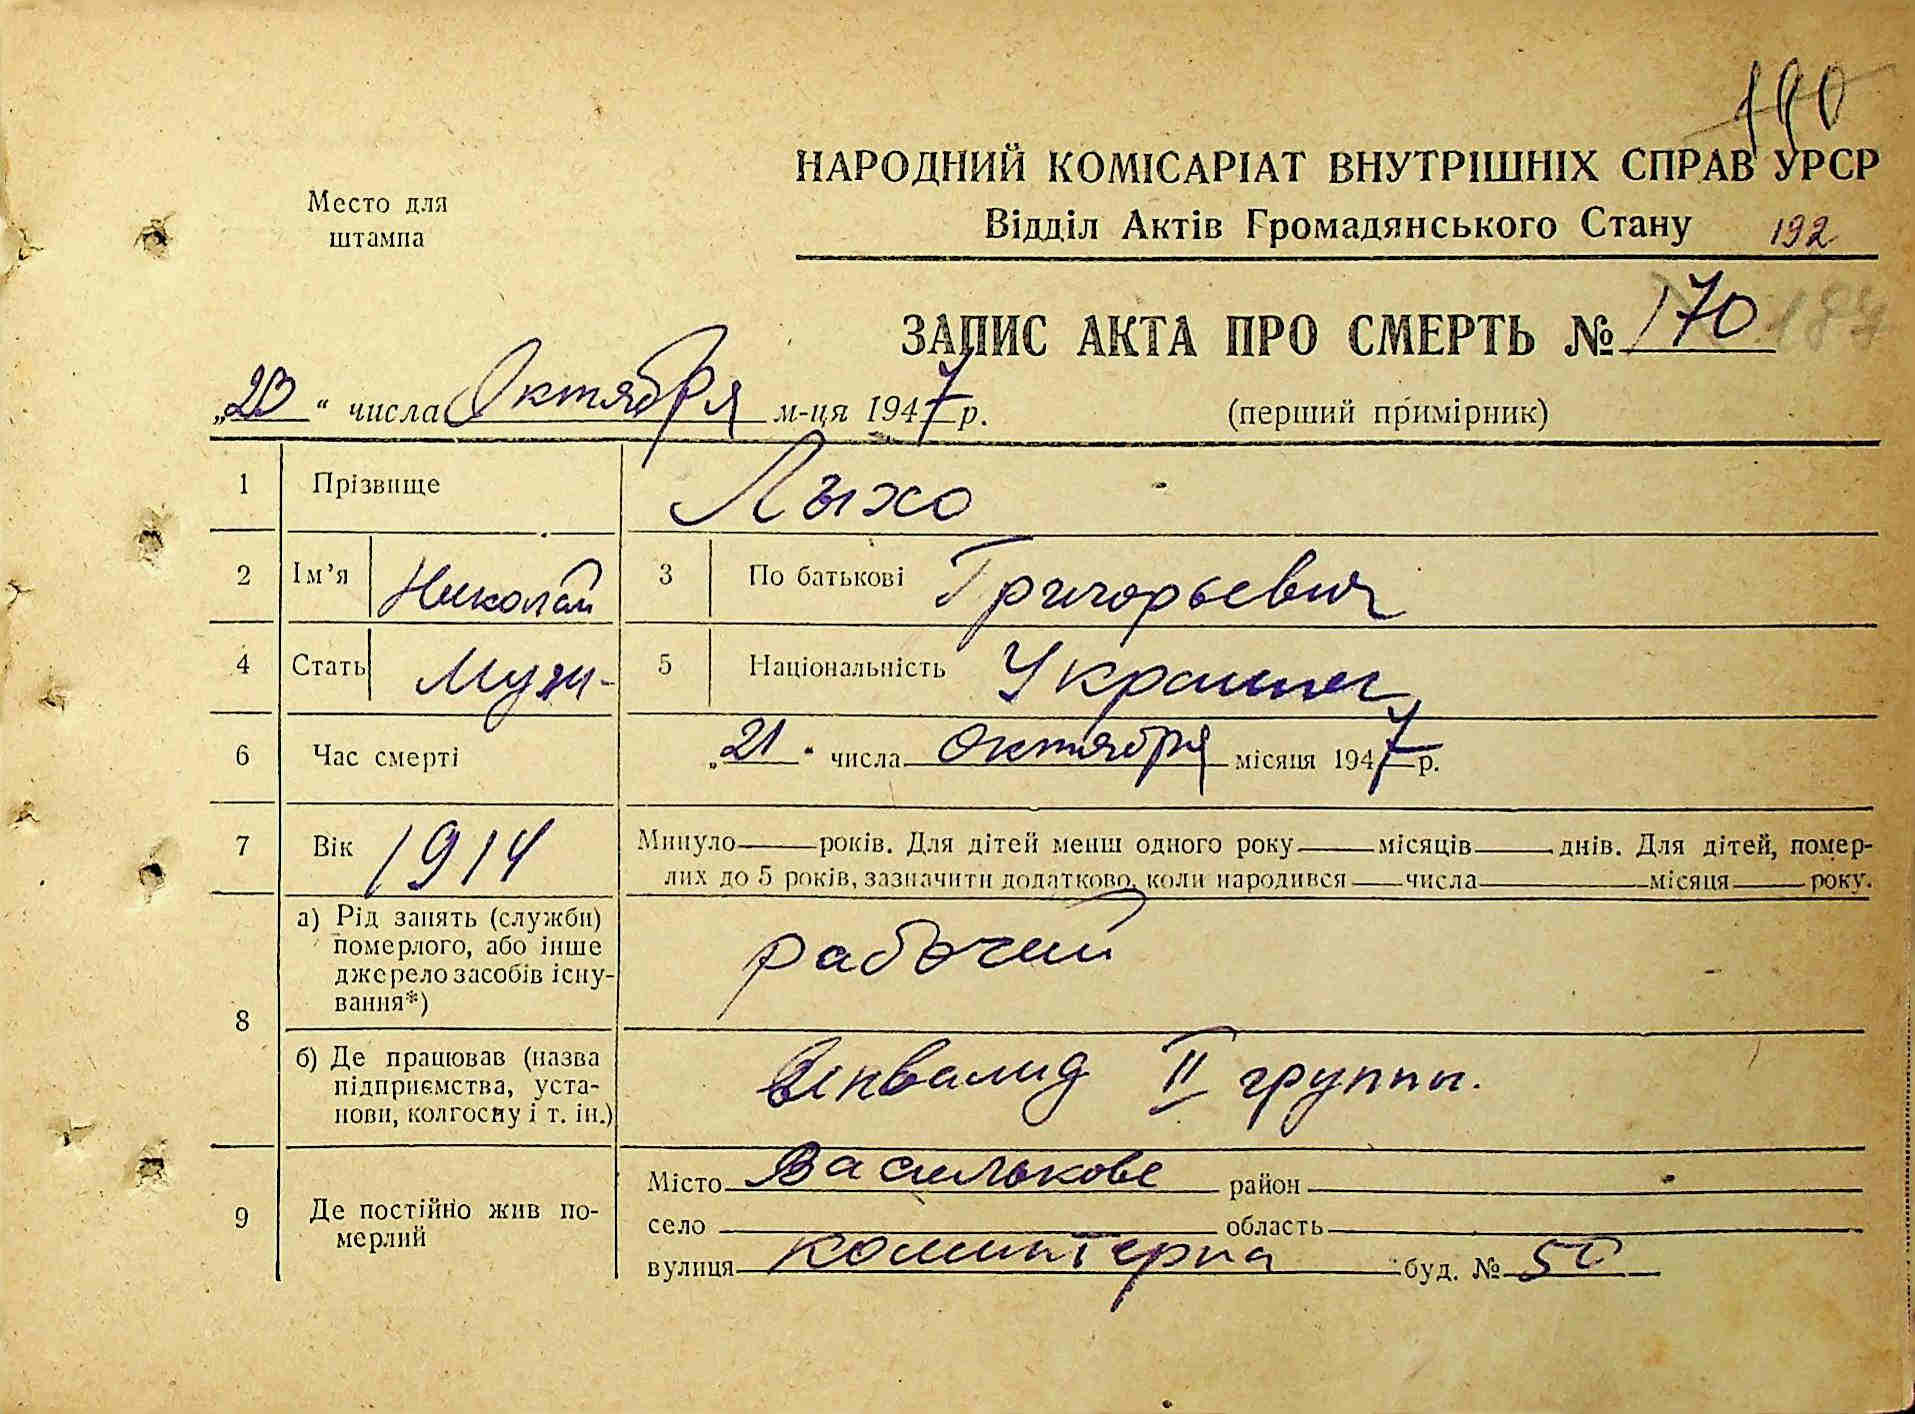 190
Место для
штампа
НАРОДНИЙ КОМІСАРІАТ ВНУТРІШНІХ СПРАВ УРСР
Відділ Актів Громадянського Стану 192
ЗАПИС АКТА ПРО СМЕРТЬ № 170 187
„23“ числа Октября м-ця 1947 р. (перший примірник)
1 Прізвище Лыхо
2 Ім’я Николай 3 По батькові Григорьевич
4 Стать Муж- 5 Національність Украинец
6 Час смерті „21“ числа октября місяця 1947 р.
7 Вік 1914 Минуло — років. Для дітей менш одного року — місяців — днів. Для дітей, помер-
лих до 5 років, зазначити додатково, коли народився — числа — місяця — року.
8 а) Рід занять (служби)
померлого, або інше
джерело засобів існу-
вання*) рабочий
б) Де працював (назва
підприємства, уста-
нови, колгоспу і т. ін.) Инвалид II группы.
9 Де постійно жив по-
мерлий
Місто Василькове район
село область
вулиця коминтерна буд. № 50